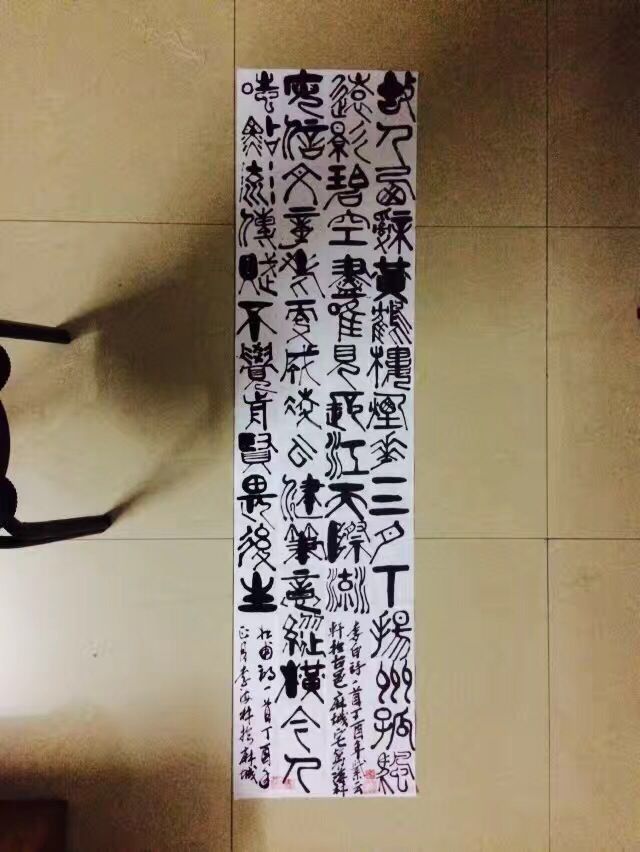 故人西辭黃鶴樓煙花三月下揚州孤帆
遠影碧空盡唯見長江天際流
李白詩一首丁酉年
古邑麻城
庾信文章老更成凌云健筆意縱橫今人
嗤點流傳賦不覺前賢畏後生
杜甫詩一首丁酉年
正月李海林於麻城